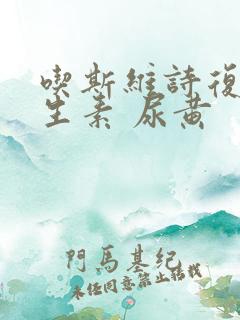 喫斯維詩復
生素 尿黄
門馬基紀
未经同意禁止转载